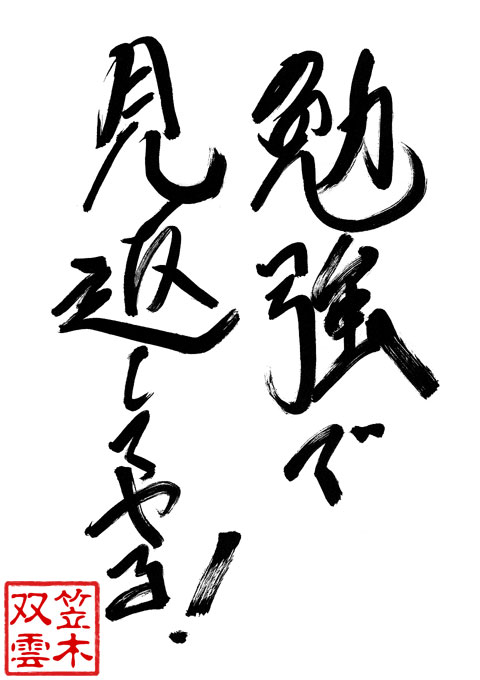 勉強で
見返してやる!
笠木
双雲